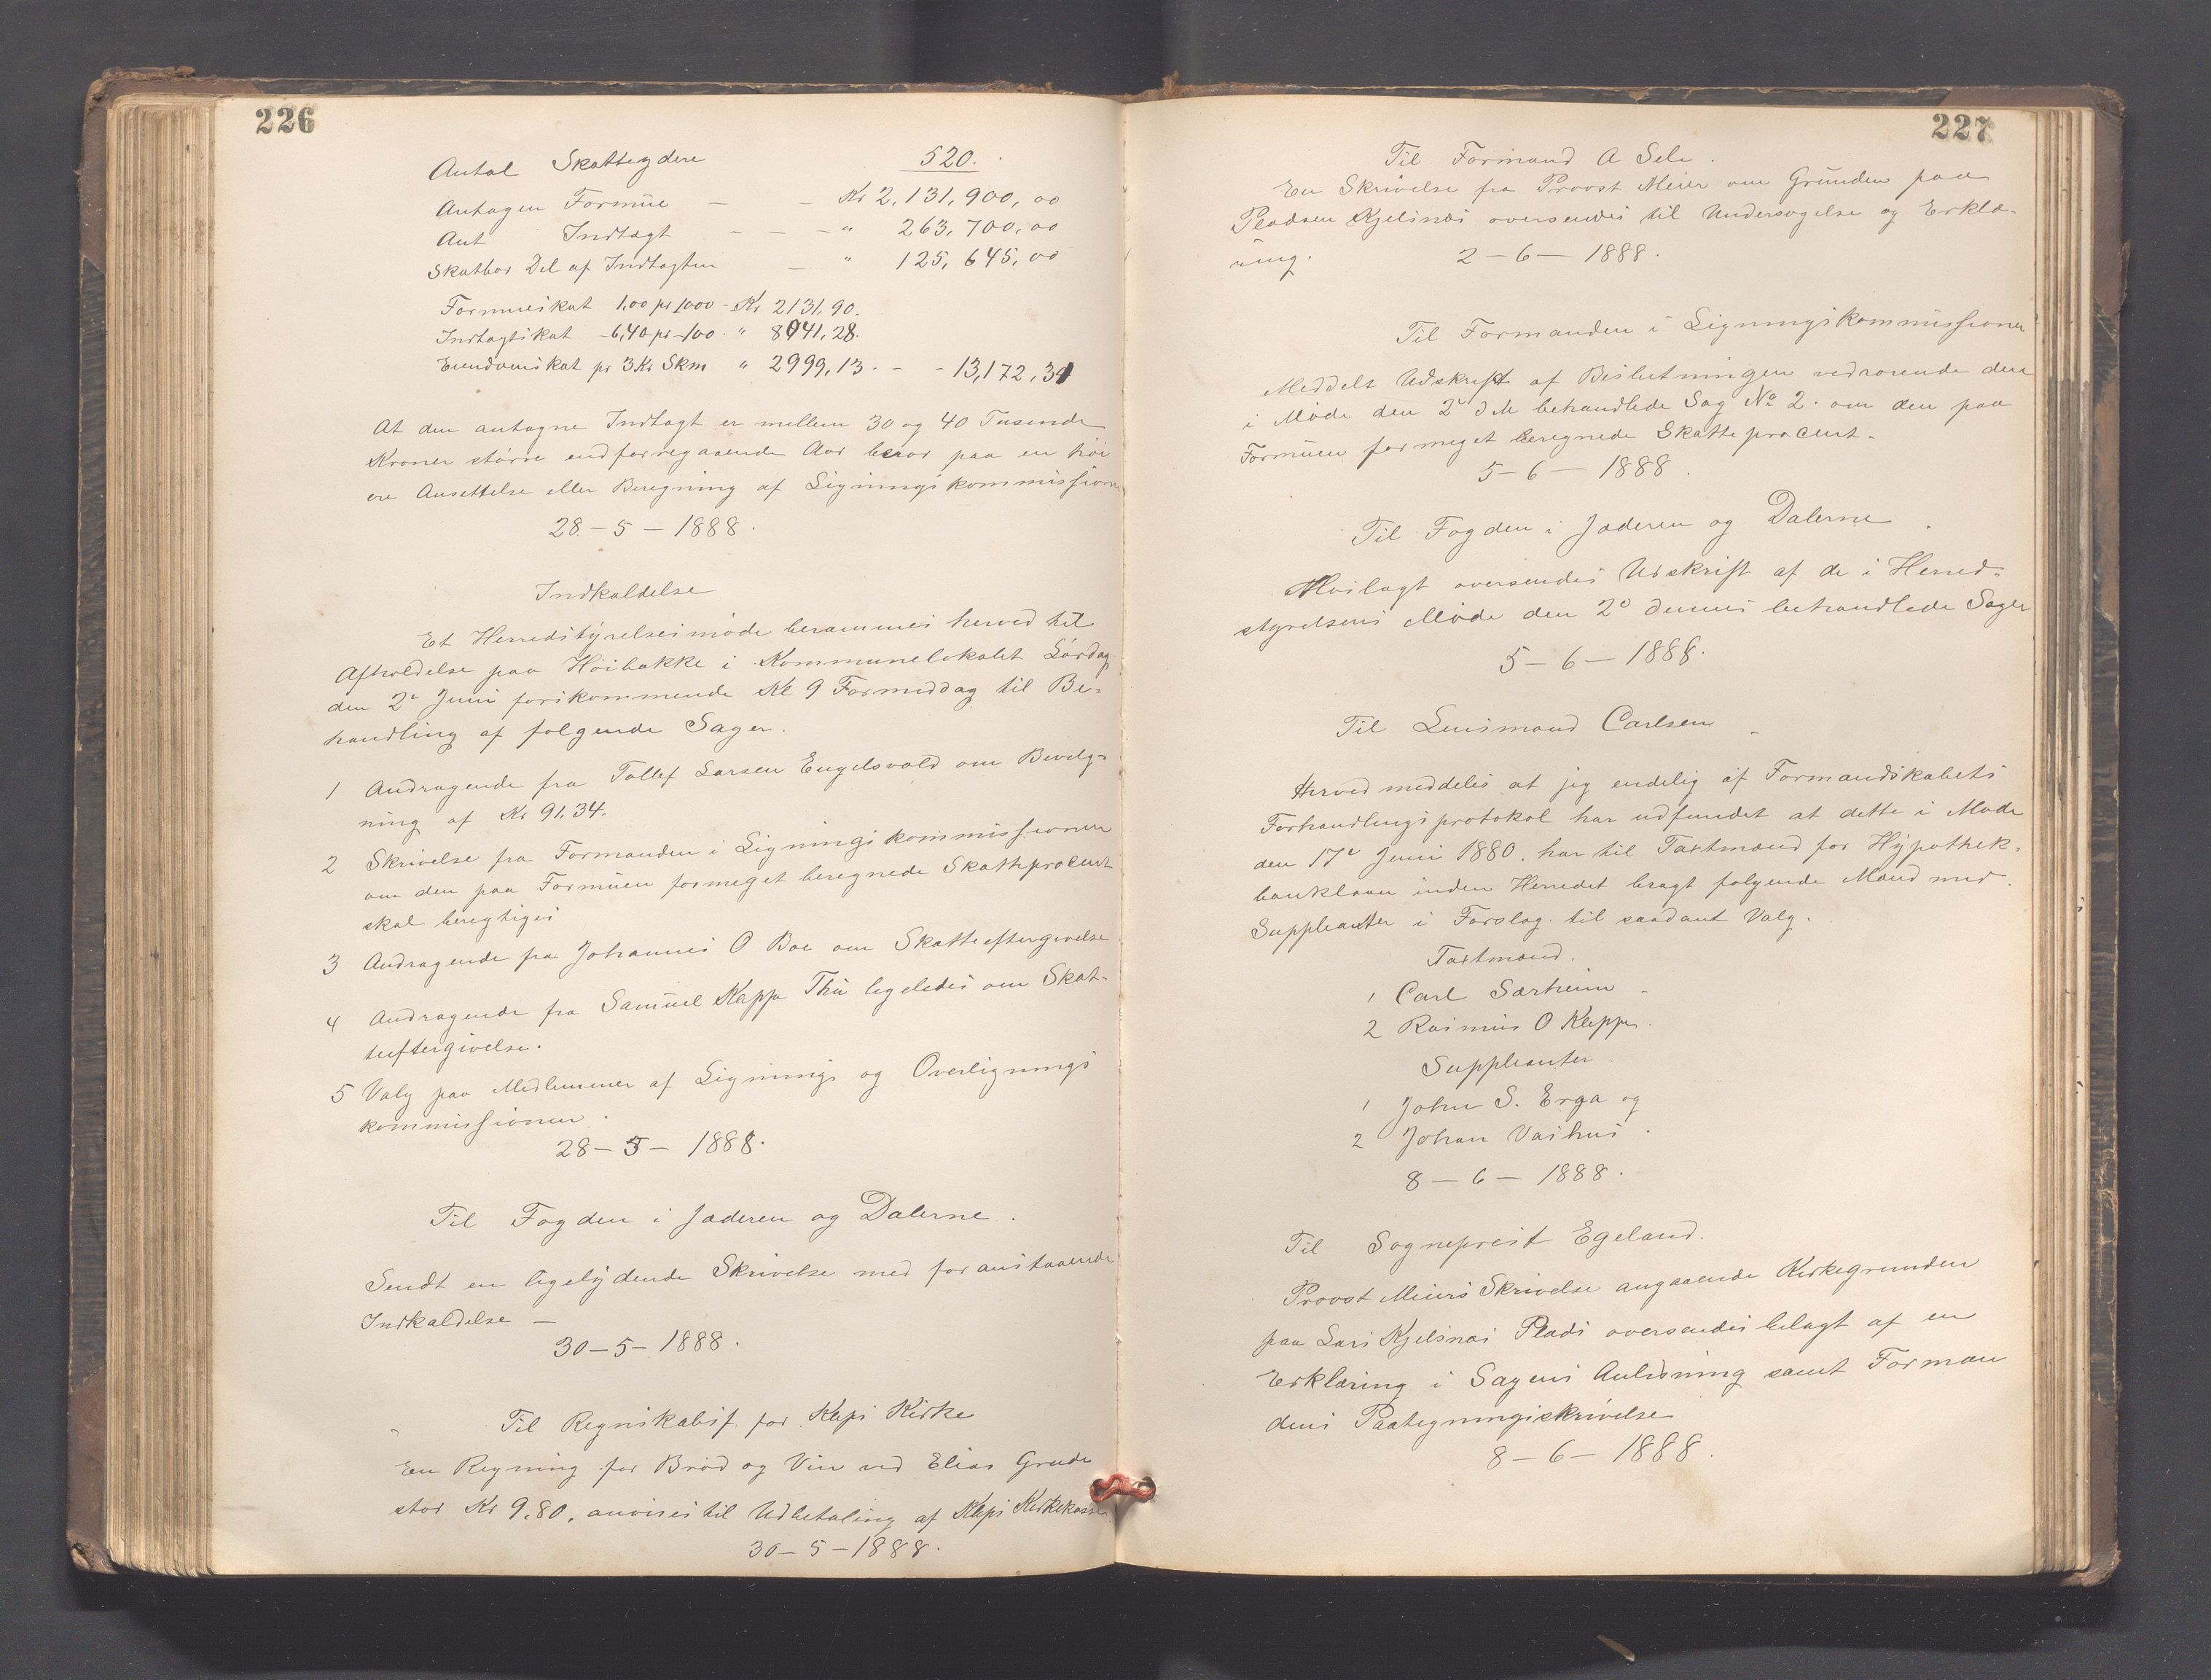 226
Antal Skatteydere 520.
Antagen Formue - - Kr 2,131,900,00
Ant Indtægt - - - " 263,700,00
Skatbar Del af Indtægten - " 125,645,00
Formueskat 1,00 pr 1000 - Kr 2131,90.
Indtægtskat - 6,40 pr 100 . " 8041,28.
Eiendomskat pr 3 Kr Skm " 2999,13. - - 13,172,31
At den antagne Indtægt er mellem 30 og 40 Tusende
Kroner større end forregaaende Aar beror paa en høi
ere Ansettelse eller Beregning af Ligningskommissionen
28 - 5 - 1888.
Indkaldelse
Et Herredstyrelsesmøde berammes herved til
Afholdelse paa Høibakke i Kommunelokalet Lørdag
den 2' Juni førskommende Kl 9 Formiddag til Be-
handling af følgende Sager.
1 Andragende fra Tollef Larsen Engelsvold om Bevilg-
ning af Kr 91.34.
2 Skrivelse fra Formanden i Ligningskommissionen
om den paa Formuen formeget beregnede Skatteprocent
skal beregtiges
3 Andragende fra Johannes O Boe om Skatteeftergivelse
4 Andragende fra Samuel Kleppe Thu ligeledes om Skat-
teeftergivelse.
5 Valg paa Medlemmer af Lignings og Overlignings
kommissionen.
28 - 5 - 1888.
Til Fogden i Jæderen og Dalerne.
Sendt en ligelydende Skrivelse med foranstaaende
Indkaldelse -
30 - 5 - 1888.
Til Regnskabsf. for Kleps Kirke
En Regning for Brød og Vin ved Elias Grude
stor Kr 9,80, anvises til Udbetaling af Kleps Kirkekasse
30 - 5 - 1888.
227
Til Formand A Sele.
En Skrivelse fra Provst Meier om Grunden paa
Pladsen Kjelsnæs oversendes til Undersøgelse og Erklæ-
ring. 2 - 6 - 1888.
Til Formanden i Ligningskommissionen
Meddelt Udskrift af Beslutningen vedrørende den
i Møde den 2' d M behandlede Sag No 2. om den paa
Formuen formeget beregnede Skatteprocent.
5 - 6 - 1888.
Til Fogden i Jæderen og Dalerne.
Hoslagt oversendes Udskrift af de i Herred-
styrelsens Møde den 2' dennes behandlede Sager
5 - 6 - 1888.
Til Lensmand Carlsen
Herved meddeles at jeg endelig af Formandskabets
Forhandlingsprotokol har udfundet at dette i Møde
den 17' Juni 1880. har til Taxtmænd for Hypothek-
banklaan inden Herredet bragt følgende Mænd med
Suppleanter i Forslag til saadant Valg.
Taxtmænd.
1 Carl Særheim
2 Rasmus O Kleppe.
Suppleanter
1 John S. Erga og
2 Johan Vashus.
8 - 6 - 1888.
Til Sogneprest Egeland.
Provst Meiers Skrivelse angaaende Kirkegrunden
paa Lars Kjelsnæs Plads oversendes belagt af en
Erklæring i Sagens Anledning samt Forman
dens Paategningsskrivelse
8 - 6 - 1888.